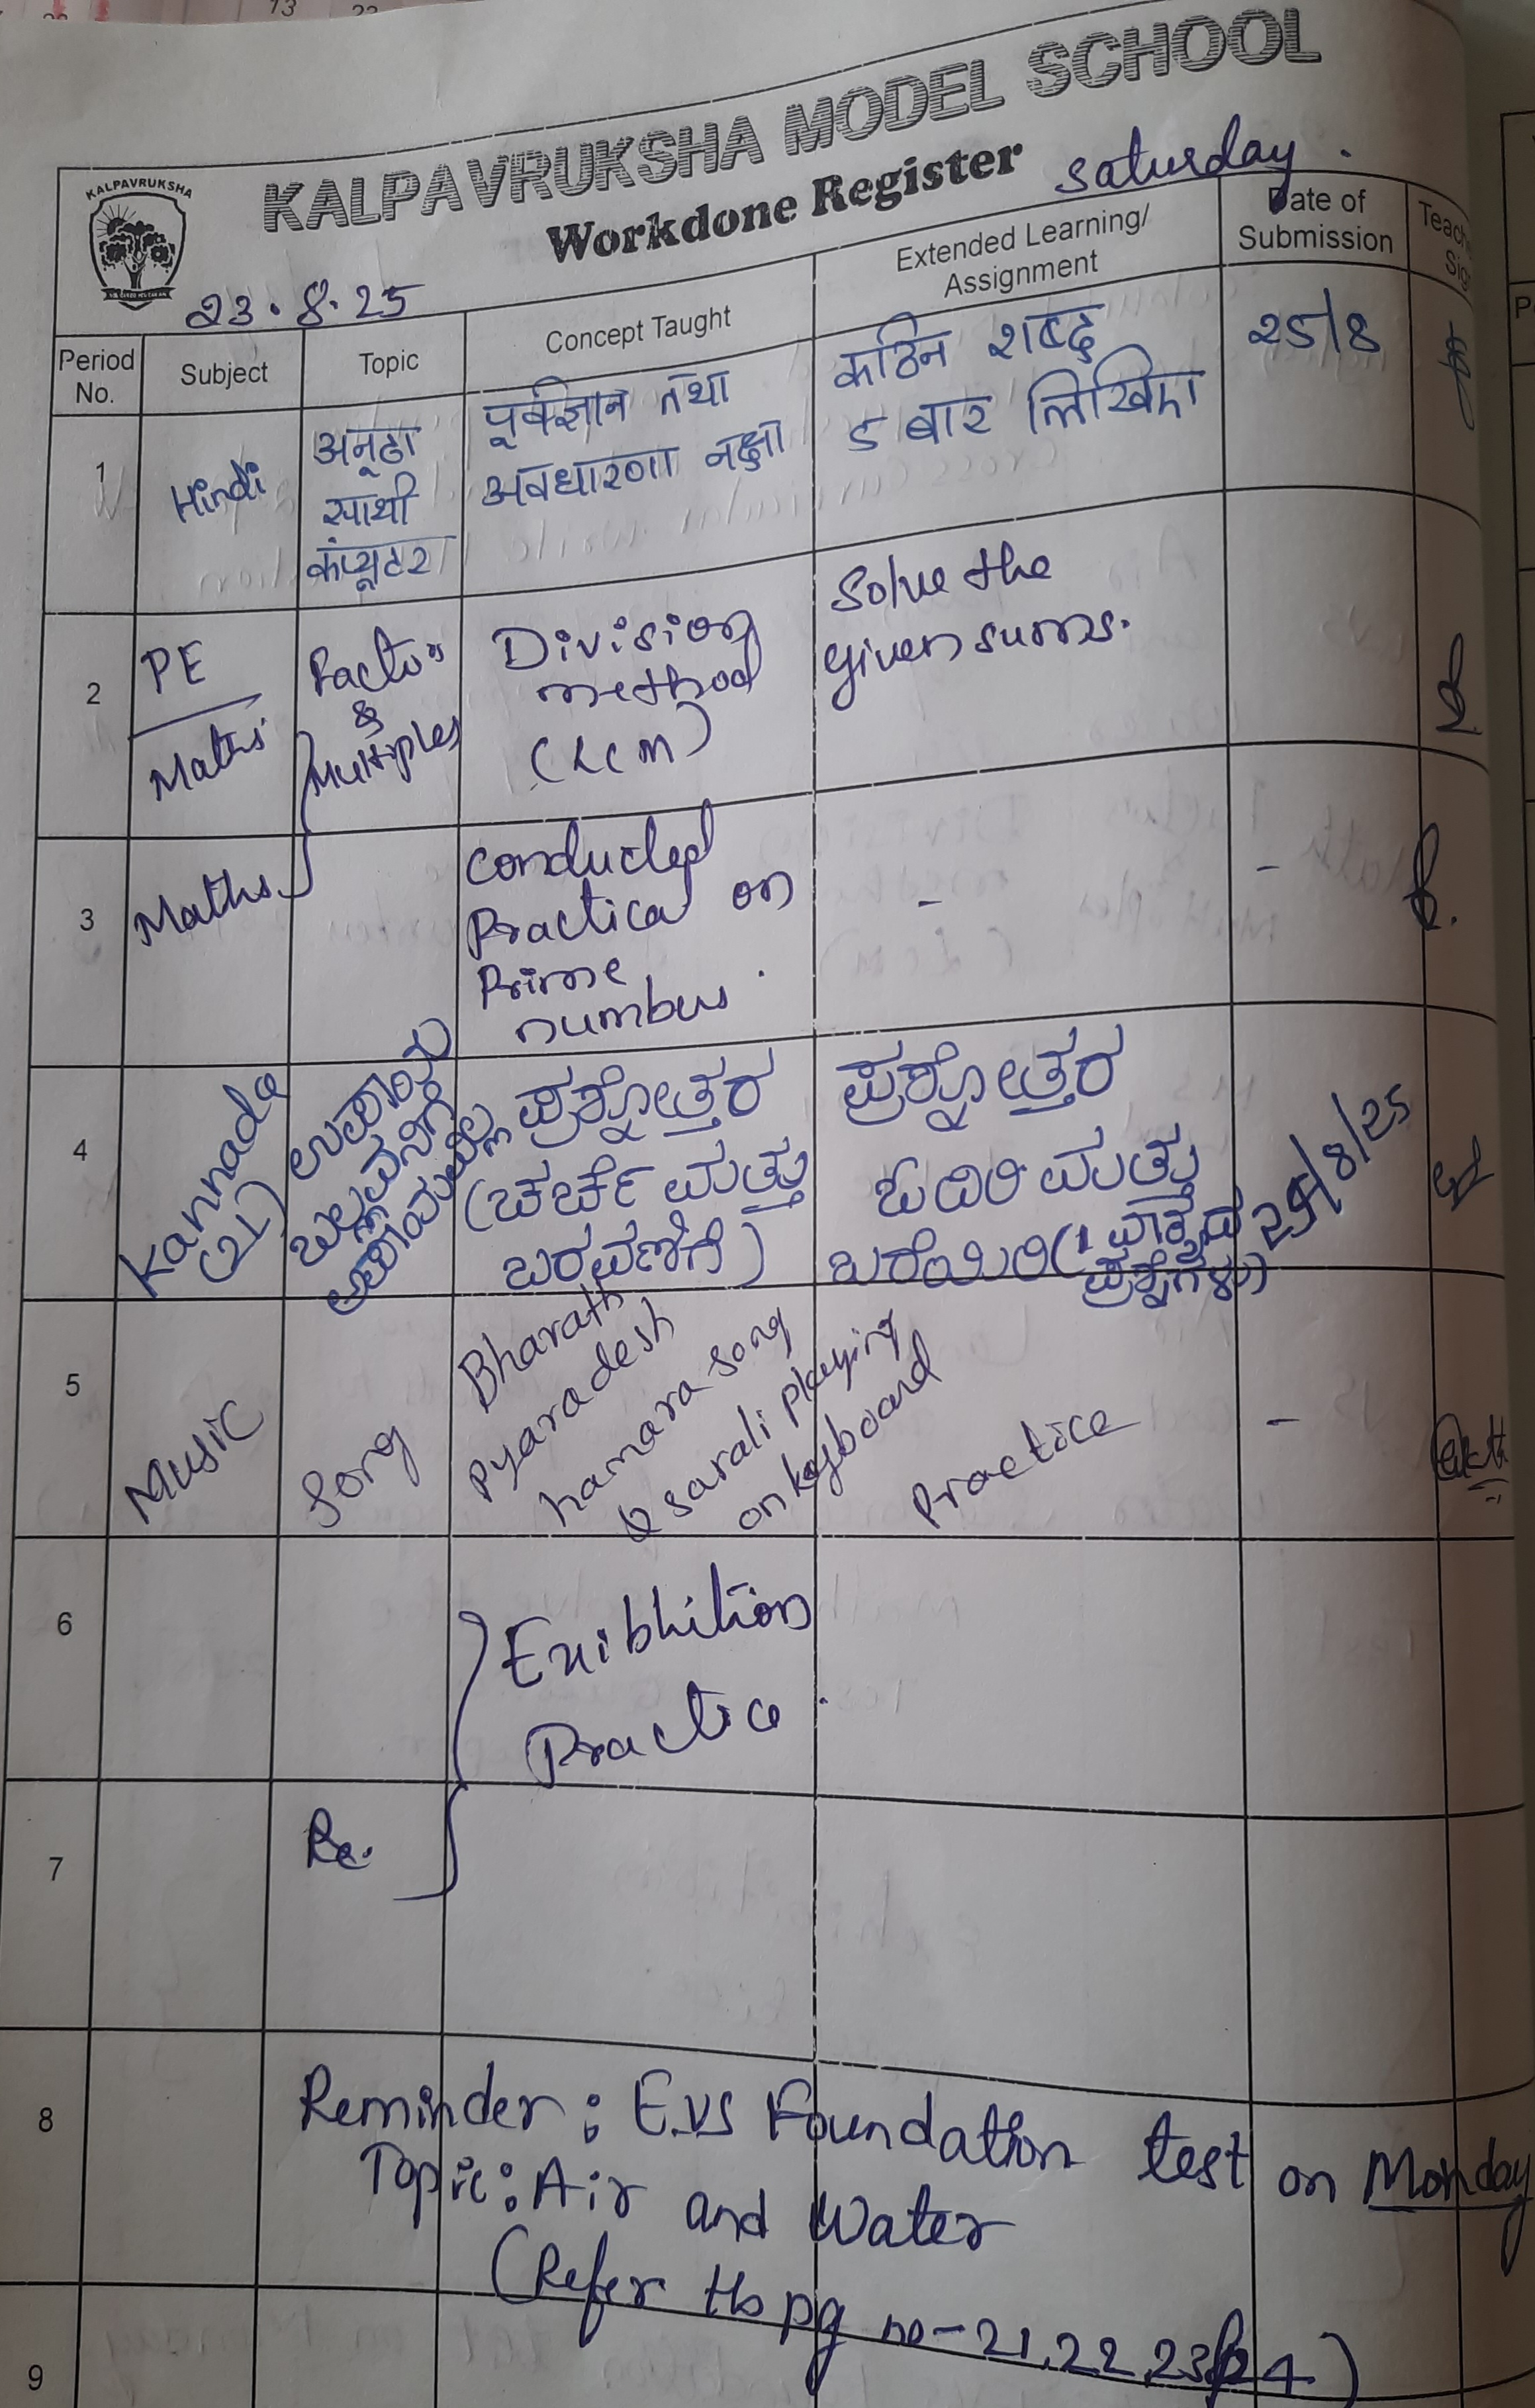 KALPAVRUKSHA MODEL SCHOOL
KALPAVRUKSHA
Workdone Register
saturday.
23.8.25
Period No.
Subject
Topic
Concept Taught
Extended Learning/
Assignment
Date of
Submission
1
Hindi
अनूठा
साथी
कंप्यूटर
पूर्वज्ञान तथा
अवधारणा नक्षा
कठिन शब्द
5 बार लिखिए
25/8
2
PE
Maths
Factors
&
Multiples
Division
method
(LCM)
Solve the
given sums.
3
Maths
conducted
Practical on
Prime
numbers.
-
-
4
Kannada
(2L)
ಉಪಾಯ
ಬಲ್ಲವನಿಗೆ
ಅಪಾಯವಿಲ್ಲ
ಪ್ರಶ್ನೋತ್ತರ
(ಚರ್ಚೆ ಮತ್ತು
ಬರವಣಿಗೆ)
ಪ್ರಶ್ನೋತ್ತರ
ಓದಿರಿ ಮತ್ತು
ಬರೆಯಿರಿ (1 ವಾಕ್ಯದ
ಪ್ರಶ್ನೆಗಳು)
25/8/25
5
Music
Song
Bharath
Pyaradesh
hamara song
& sarali playing
on keyboard
Practice
-
6
Exibhition
Practice.
7
Re.
8
Reminder: E.VS Foundation test on Monday
Topic: Air and Water
(Refer tb pg no-21,22,23,24)
9